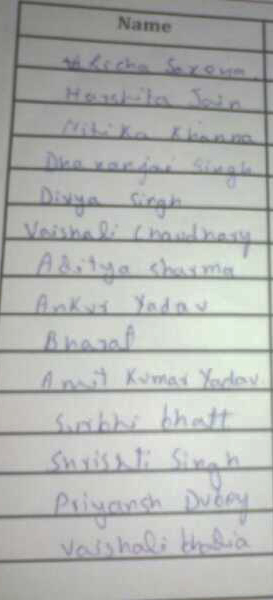 Name
Richa Saxena
Harshita Jain
Nitika Khanna
Dhananjai Singh
Divya Singh
Vaishali Chaudhary
Aditya Sharma
Ankur Yadav
Bharat
Amit Kumar Yadav
Surbhi bhatt
Shrishti Singh
Priyansh Dubey
Vaishali